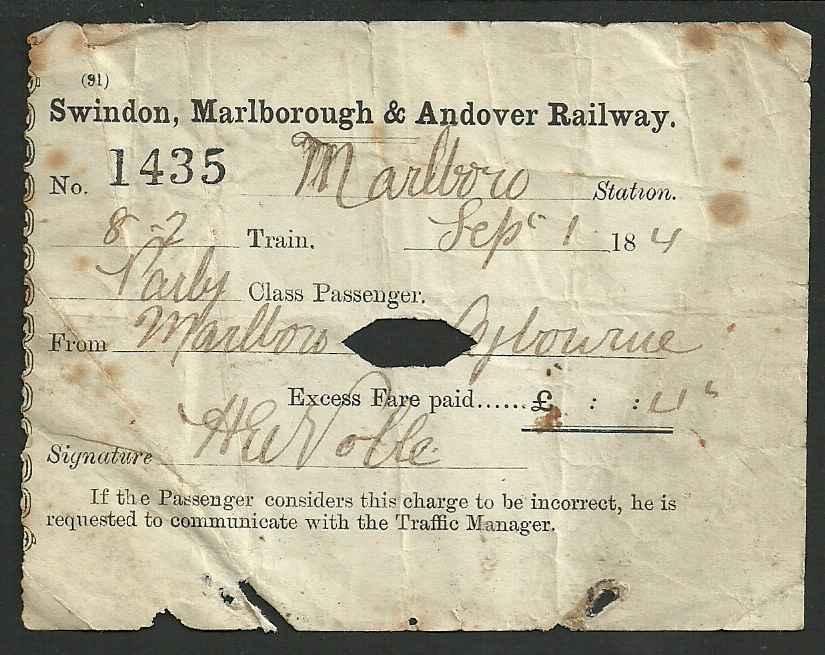 (91)
Swindon, Marlborough & Andover Railway.
No. 1435 Marlboro Station.
8-2 Train. Sep 1 184
Parly Class Passenger.
From Marlboro Ogbourne
Excess Fare paid......£ : : 4
Signature Noble
If the Passenger considers this charge to be incorrect, he is
requested to communicate with the Traffic Manager.